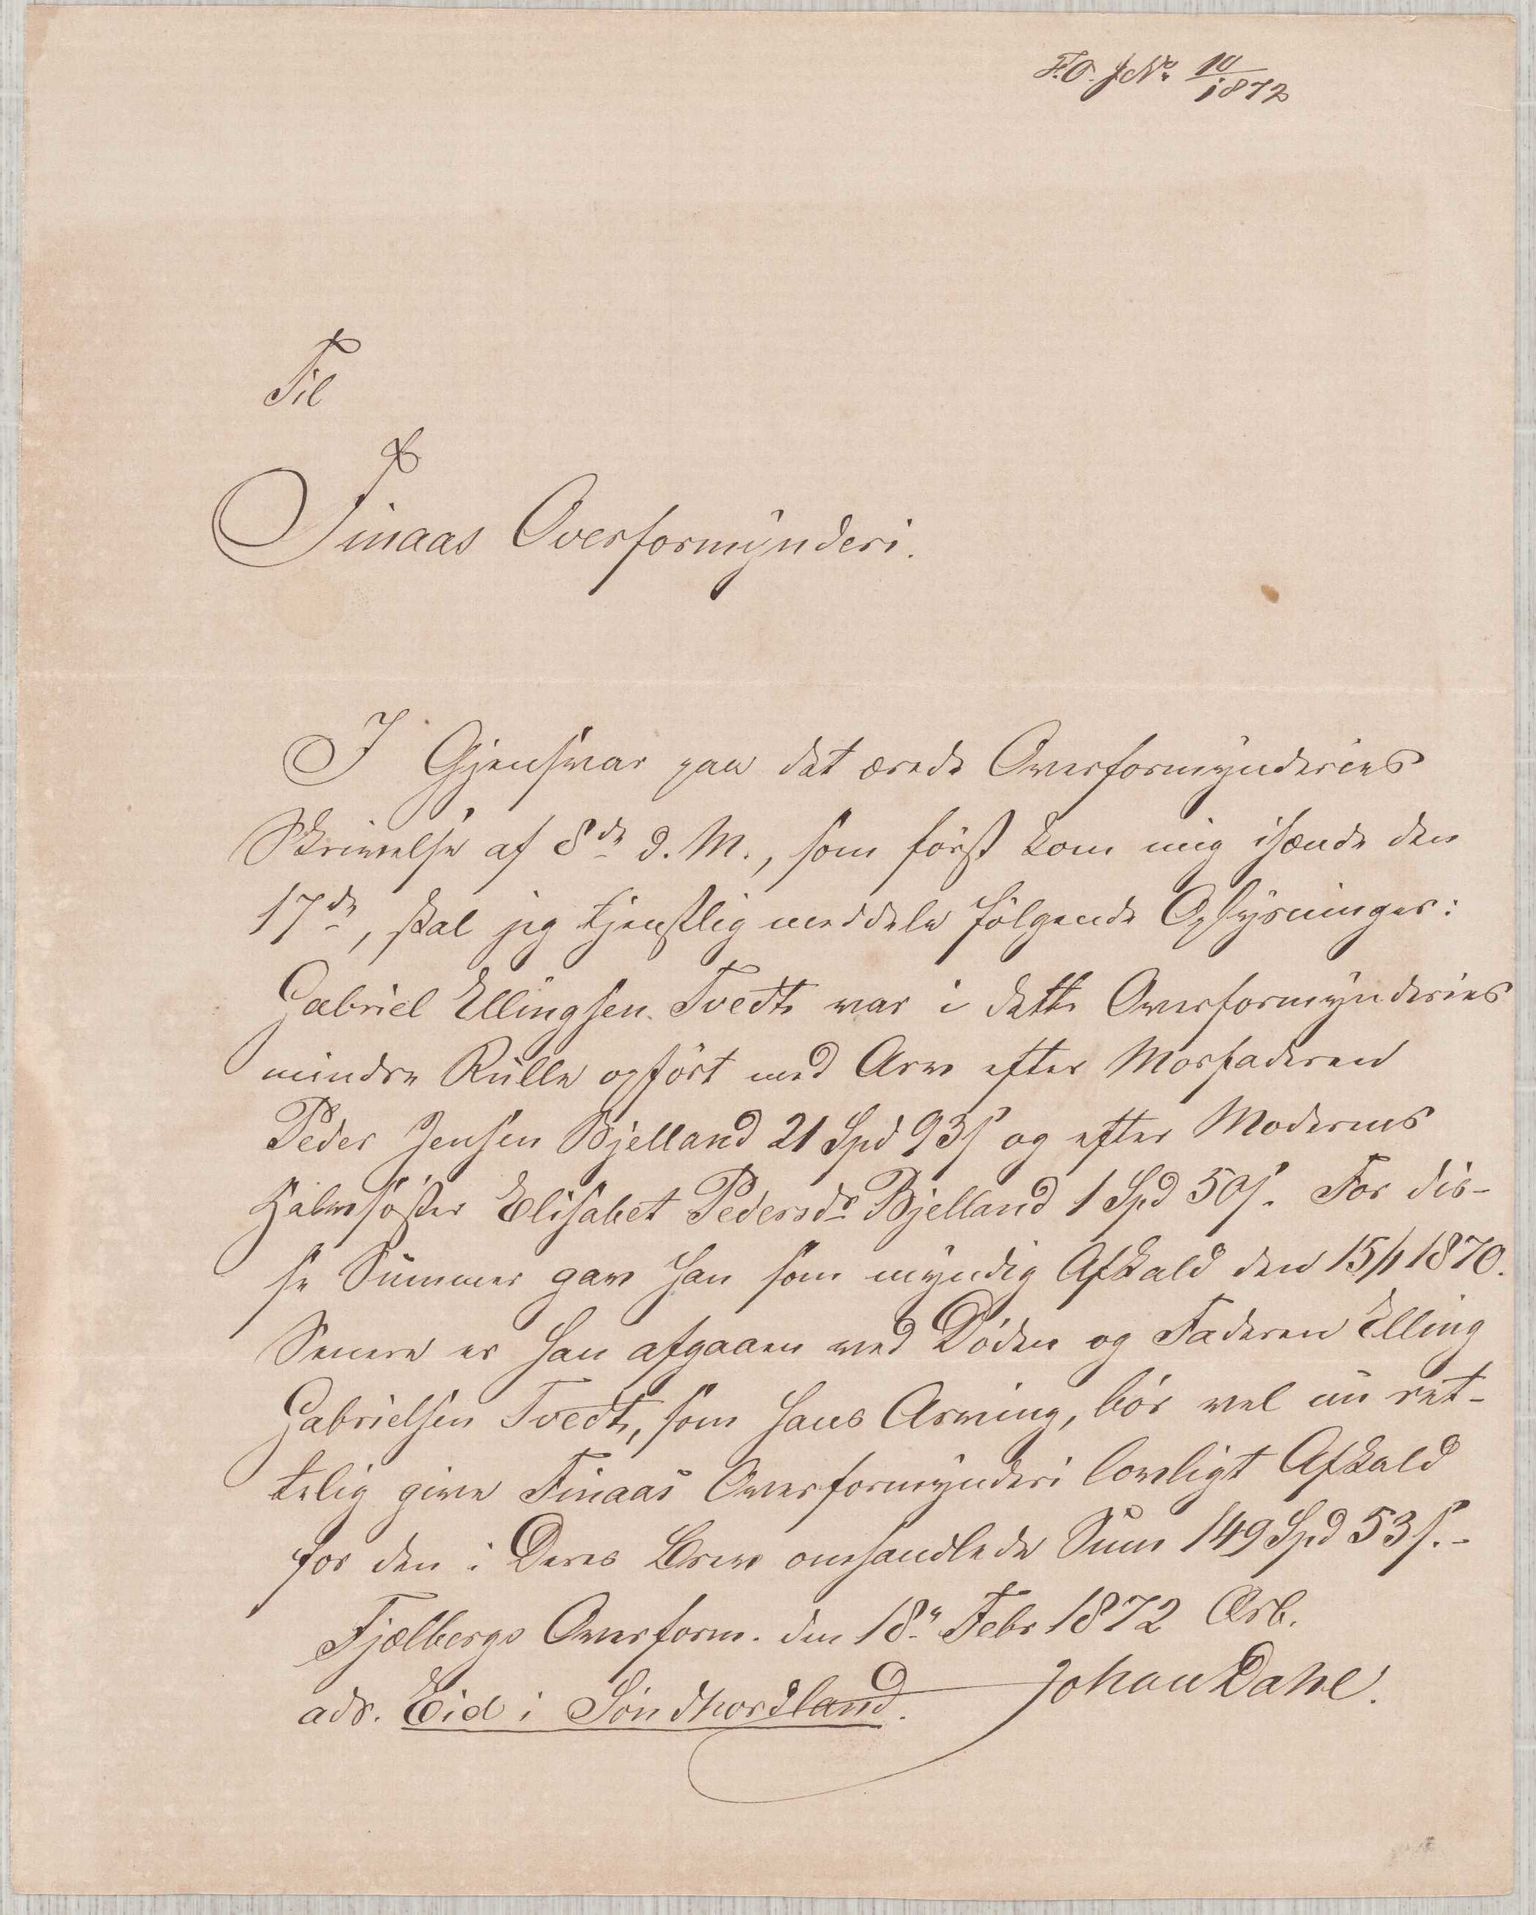 F.O. J No 10/1872
Til
Finaas Overformynderi.
I Gjensvar paa det ærede Overformynderies
Skrivelse af 8de d. M., som først kom mig ihænde den
17de, skal jeg tjenstlig meddele følgende Oplysninger:
Gabriel Ellingsen Tvedte var i dette Overformynderies
mindre Rulle opført med Arv efter Morfaderen
Peder Jensen Bjelland 21 Spd 93 s og efter Moderens
Halvsøster Elisabet Pedersdr Bjelland 1 Spd 50 s. For dis-
se Summer gav han som myndig Afkald den 15/11 1870.
Senere er han afgaaen ved Døden og Faderen Elling
Gabrielsen Tvedte, som hans Arving, bør vel nu ret-
telig give Finaas Overformynderi lovligt Afkald
for den i Deres Brev omhandlede Sum 149 Spd 53 s. -
Fjælbergs Overform. den 18de Febr 1872 Ærb.
adr. Eid i Søndhordland. Johan Dahl.